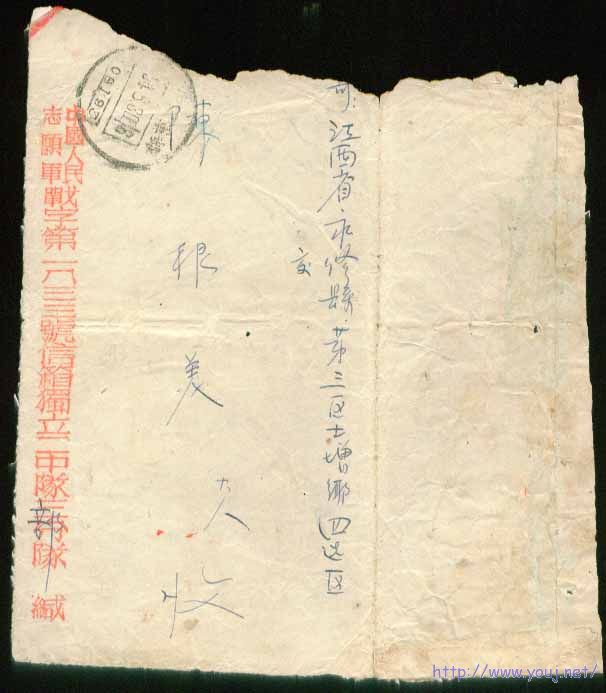 江西省永修縣第三区土增鄉四选区
交
陳根美 收
中國人民
志願軍戰字第一八三三號信箱獨立二中隊 隊部 緘
http://www.youj.net/